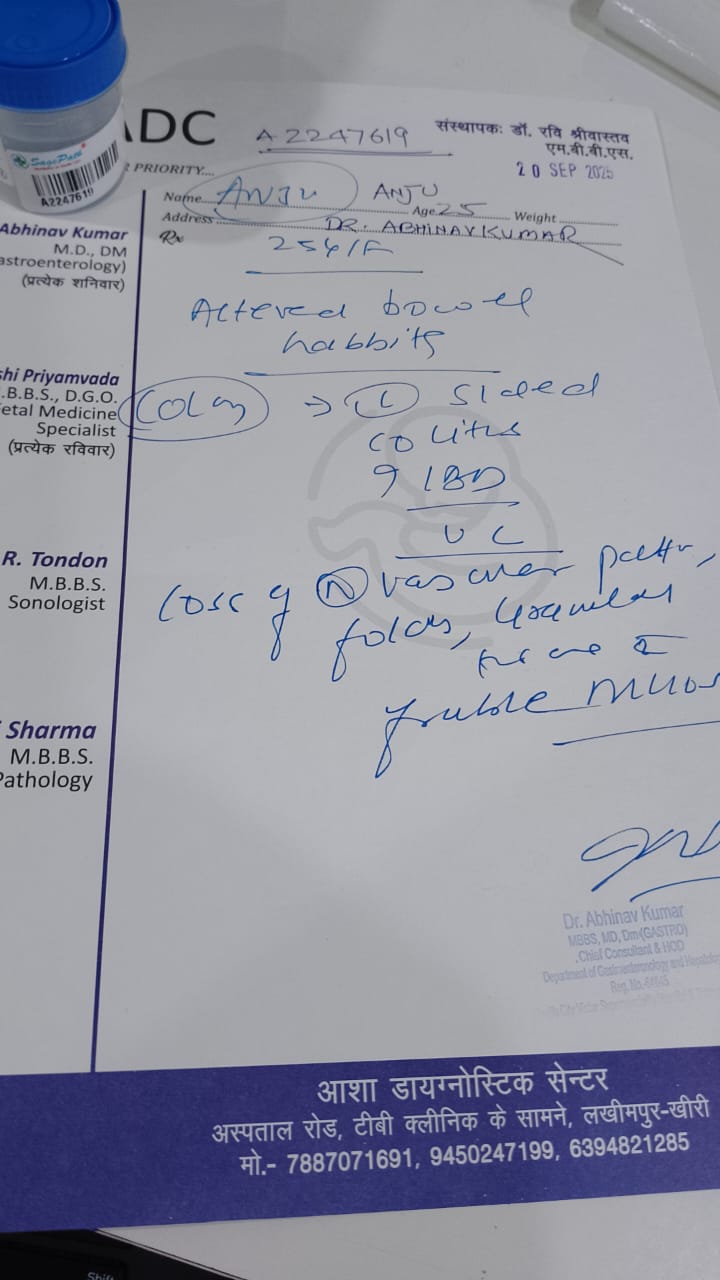 ADC
A2247619
संस्थापक: डॉ. रवि श्रीवास्तव
एम.बी.बी.एस.
20 SEP 2025
PRIORITY....
SagePath
A2247619
Name ANJU ANJU
Age 25 Weight
Address DR. ABHINAV KUMAR
Rx
Abhinav Kumar
M.D., DM
astroenterology)
(प्रत्येक शनिवार)
shi Priyamvada
.B.B.S., D.G.O.
etal Medicine
Specialist
(प्रत्येक रविवार)
R. Tondon
M.B.B.S.
Sonologist
Sharma
M.B.B.S.
Pathology
25y/F
Altered bowel
habbits
Colon → (L) sided
colitis
? IBD
UC
Loss of (N) vascular
folds, Granular
friable mucos
Dr. Abhinav Kumar
MBBS, MD, Dm(GASTRO)
Chief Consultant & HOD
Department of Gastroenterology and
Reg. No.
आशा डायग्नोस्टिक सेन्टर
अस्पताल रोड, टीबी क्लीनिक के सामने, लखीमपुर-खीरी
मो.- 7887071691, 9450247199, 6394821285
Shift